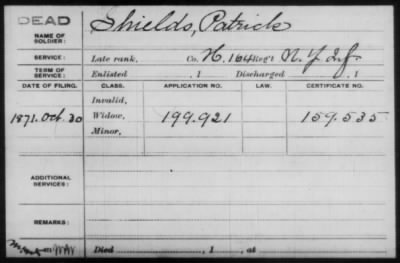 DEAD
NAME OF SOLDIER: Shields, Patrick
SERVICE: Late rank, Co. H. 164 Reg't N. Y. Inf.
TERM OF SERVICE: Enlisted , 1 Discharged , 1
DATE OF FILING. CLASS. APPLICATION NO. LAW. CERTIFICATE NO.
Invalid,
1871. Oct. 30 Widow, 199.921 159.535
Minor,
ADDITIONAL SERVICES:
REMARKS:
Died , 1 , at